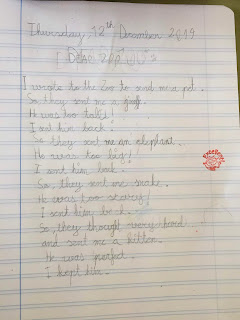 Thursday, 12th December 2019
I wrote to the Zoo to send me a pet.
So they sent me a
He was too tall!
I sent him back!
So they sent me an elephant.
He was too big!
I sent him back.
So, they sent me snake.
He was too scarey!
I sent him back.
So, they thought very hard
and sent me a kitten.
He was perfect.
I kept him.